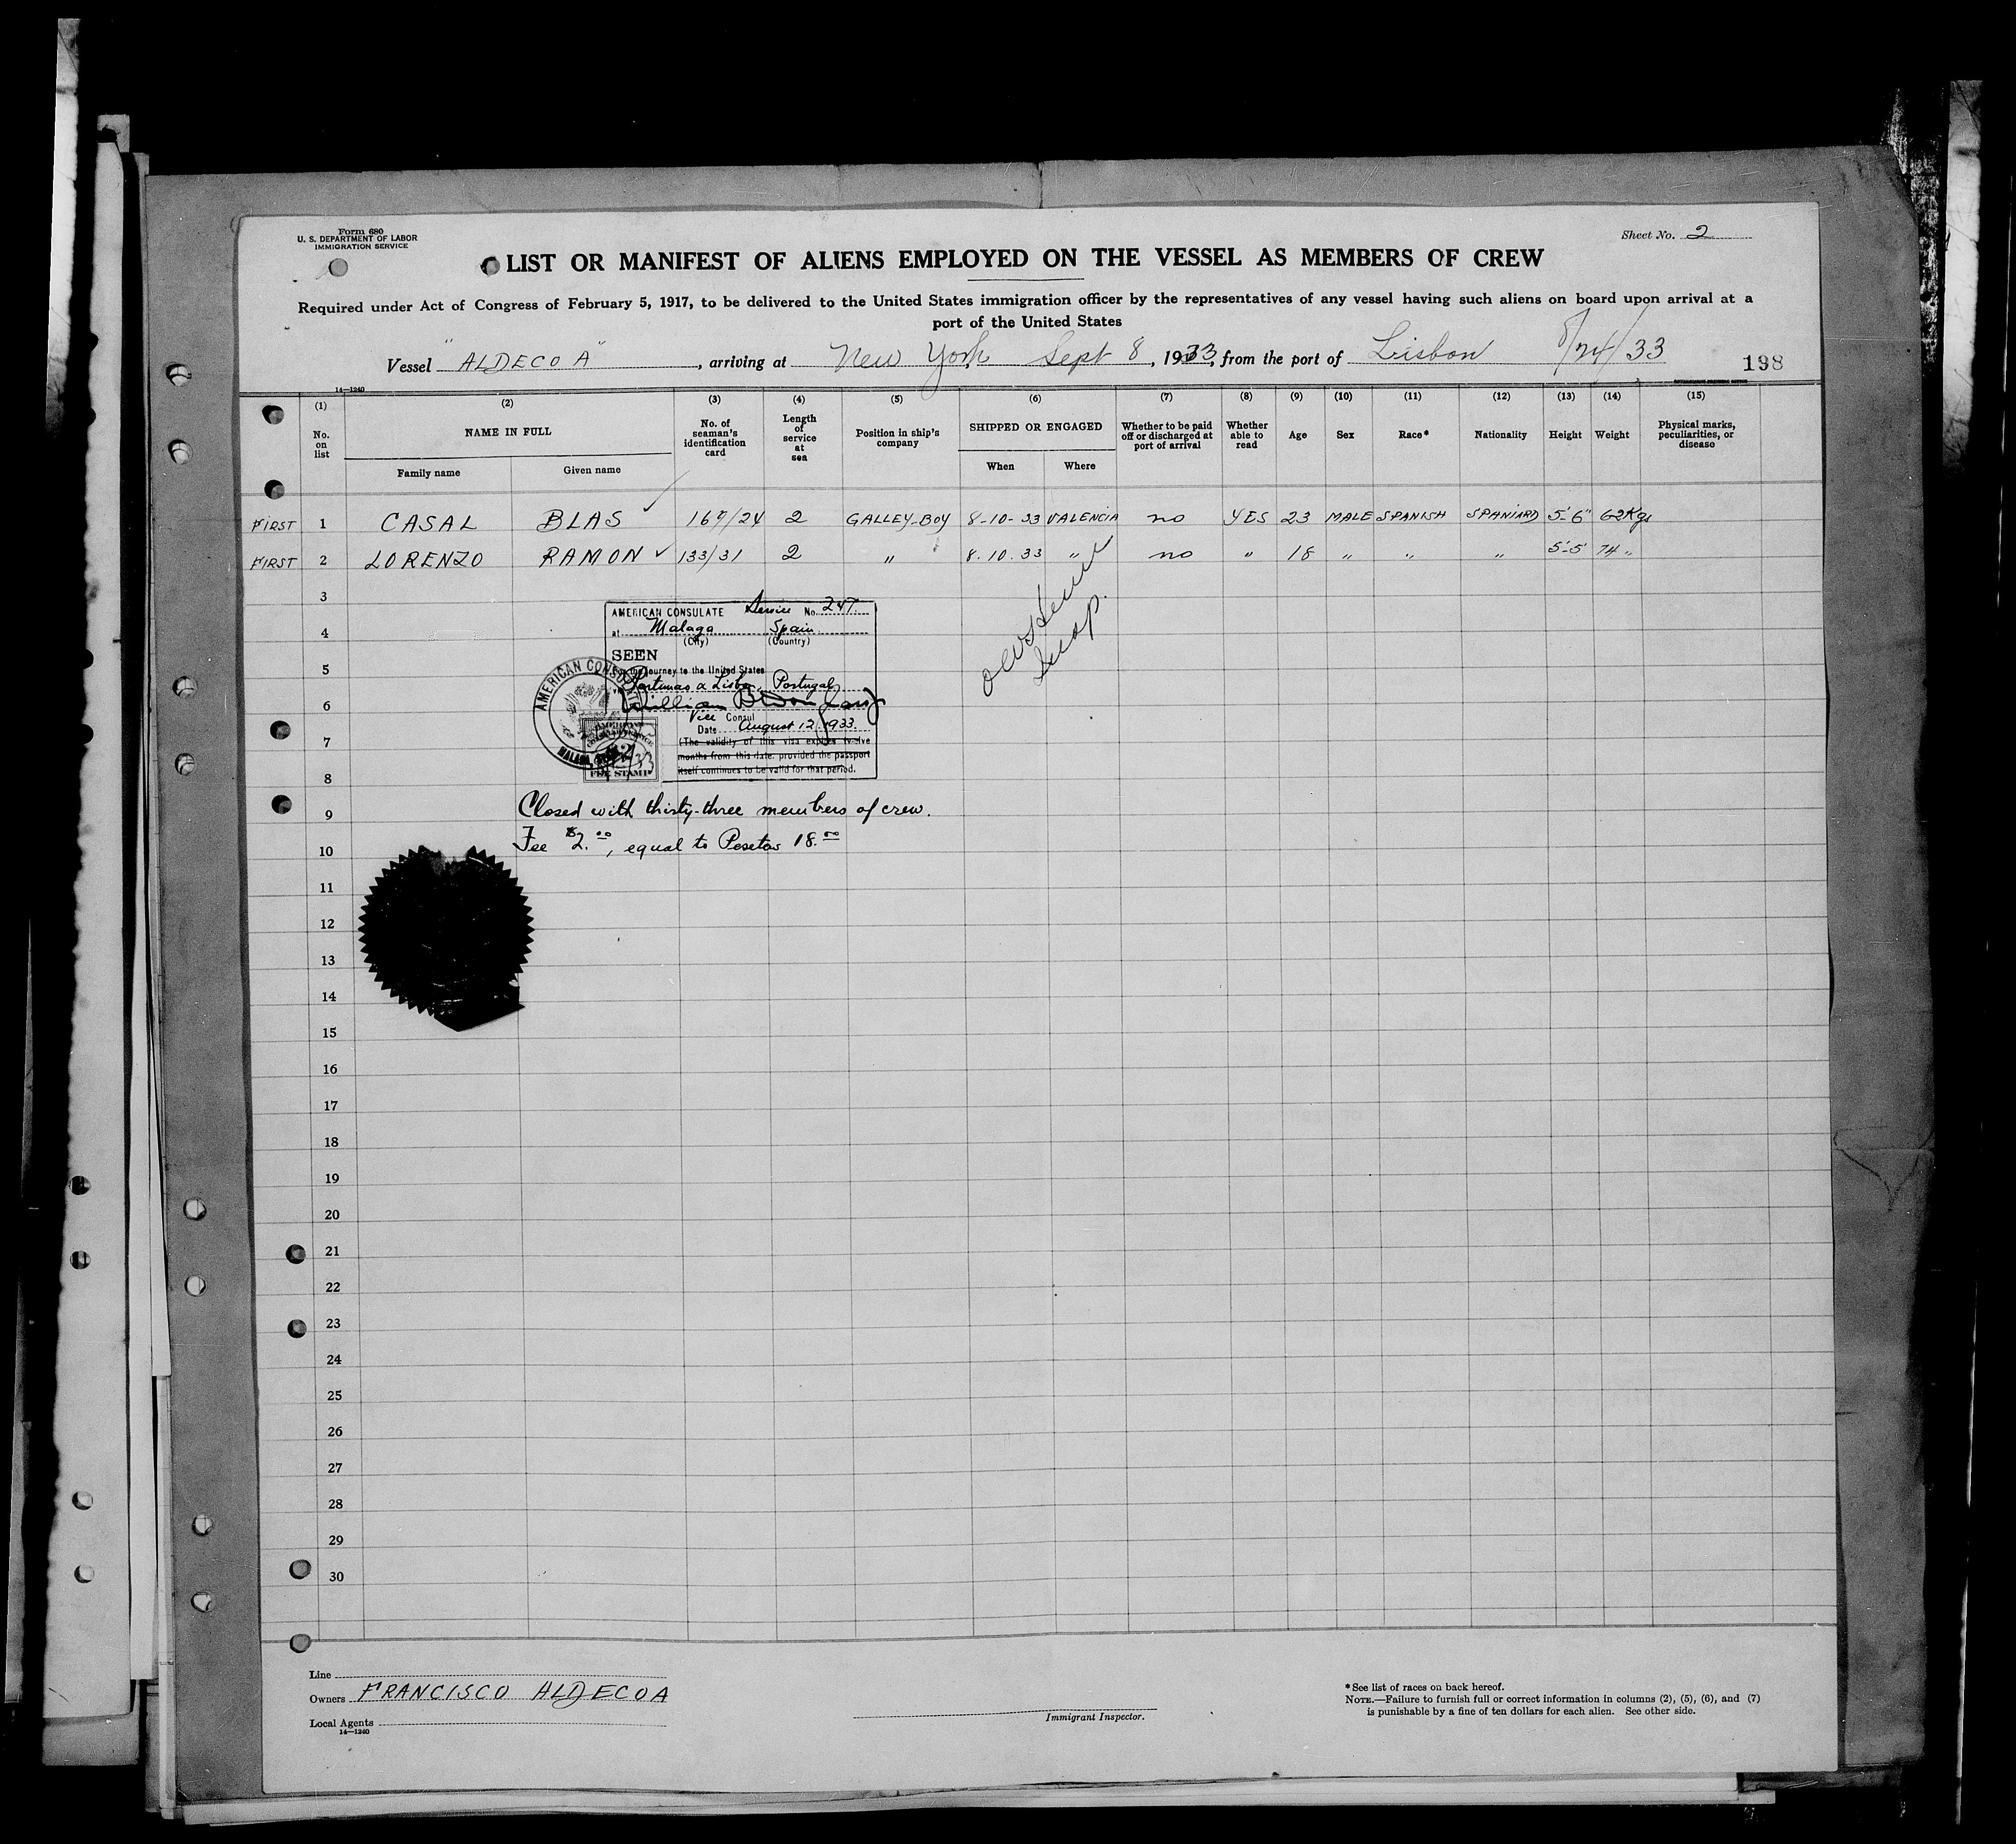 Form 680
U. S. DEPARTMENT OF LABOR
IMMIGRATION SERVICE
Sheet No. 2
LIST OR MANIFEST OF ALIENS EMPLOYED ON THE VESSEL AS MEMBERS OF CREW
Required under Act of Congress of February 5, 1917, to be delivered to the United States immigration officer by the representatives of any vessel having such aliens on board upon arrival at a
port of the United States
Vessel "ALDECOA", arriving at New York, Sept 8, 1933, from the port of Lisbon 8/24/33
198
14—1240
(1) (2) (3) (4) (5) (6) (7) (8) (9) (10) (11) (12) (13) (14) (15)
No. on list NAME IN FULL Family name Given name No. of seaman's identification card Length of service at sea Position in ship's company SHIPPED OR ENGAGED When Where Whether to be paid off or discharged at port of arrival Whether able to read Age Sex Race* Nationality Height Weight Physical marks, peculiarities, or disease
FIRST 1 CASAL BLAS ✓ /24 2 GALLEY-BOY 8-10-33 VALENCIA no YES 23 MALE SPANISH SPANIARD 5'-6" 62Kgs
FIRST 2 LORENZO RAMON ✓ 133/31 2 " 8.10.33 " no " 18 " " " 5'-5' 74 "
3
AMERICAN CONSULATE Service No. 247
4
at Malaga Spain
(City) (Country)
SEEN
5
journey to the United States
Portugal
6
William
Vice Consul
Date August 12, 1933.
7
(The validity of this visa expires twelve
months from this date provided the passport
itself continues to be valid for that period.
AMERICAN CONSULATE
MALAGA
FEE STAMP
8
9
Closed with thirty-three members of crew.
10
Fee $2.00, equal to Pesetas 18.00
11
12
13
14
15
16
17
18
19
20
21
22
23
24
25
26
27
28
29
30
Line
Owners FRANCISCO ALDECOA
Local Agents
14—1240
Immigrant Inspector.
*See list of races on back hereof.
NOTE.—Failure to furnish full or correct information in columns (2), (5), (6), and (7)
is punishable by a fine of ten dollars for each alien. See other side.